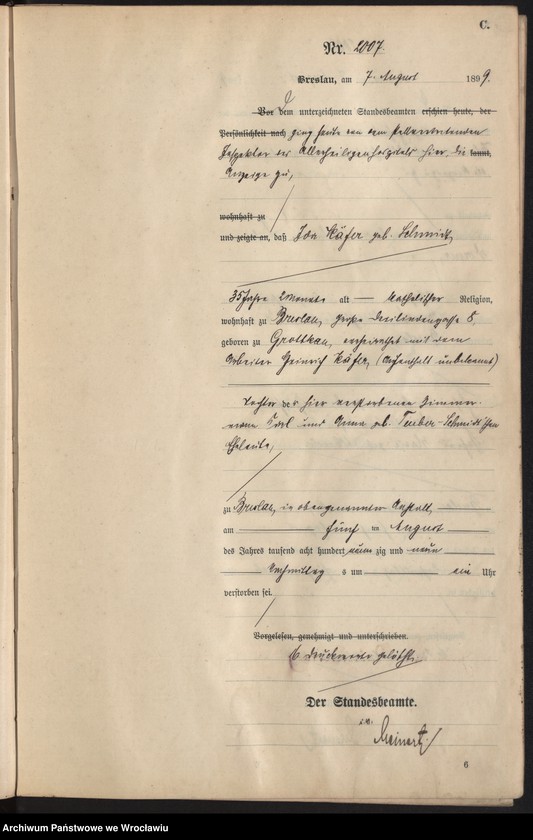 C.
Nr. 2007.
Breslau, am 7. August 1899.
Vor Dem unterzeichneten Standesbeamten erschien heute, der
Persönlichkeit nach ging heute von dem stellvertretenden
Inspektor des Allerheiligenhospitals hier, die kannt,
Anzeige zu,
wohnhaft zu
und zeigte an, daß Käfer geb. Schmidt,
35 Jahre 2 Monate alt katholischer Religion,
wohnhaft zu Breslau, große Dreilindengasse 8
geboren zu Grottkau, verheirathet mit dem
Arbeiter Heinrich Käfer, (Aufenthalt unbekannt)
Tochter der hier verstorbenen Zimmer-
mann Karl und Anna geb. Teuber-Schmidt'schen
Eheleute,
zu Breslau, in obengenannter Anstalt,
am fünf ten August
des Jahres tausend acht hundert neun zig und neun
Nachmittag s um ein Uhr
verstorben sei.
Vorgelesen, genehmigt und unterschrieben.
16 Druckworte gelöscht.
Der Standesbeamte.
i.V.
Meinert
6
Archiwum Państwowe we Wrocławiu